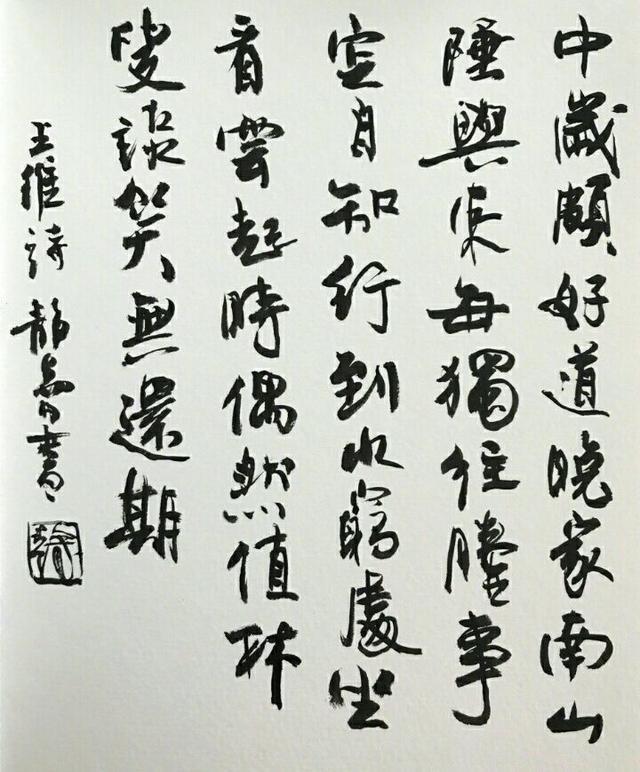 中歲頗好道晚家南山
陲興來每獨往勝事
空自知行到水窮處坐
看雲起時偶然值林
叟談笑無還期
王維詩 靜書